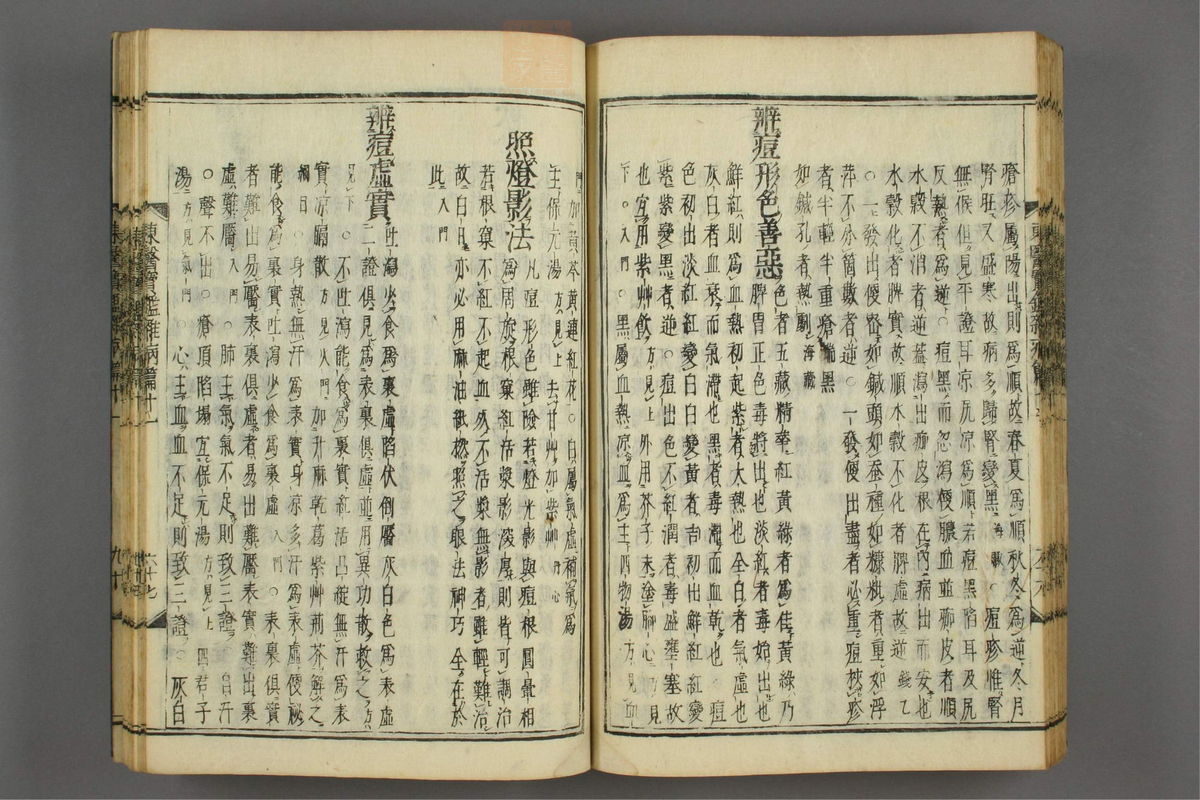 瘡疹屬陽出則爲順故春夏爲順秋冬爲逆冬月
腎旺又盛寒故病多歸腎變黑海藏○痘疹惟腎
無候但見平證耳凉尻凉爲順若痘黑陷耳及尻
反熱者爲逆○痘黑而忽瀉便膿血並痂皮者順
水穀不消者逆盖瀉出痂皮根在內病出而安也
水穀化者脾實故順水穀不化者脾虛故逆錢乙
○一發出便密如鍼頭如蚕種如糠粃者重如浮
萍不分箇數者逆○一發便出盡者必重痘挾疹
者半輕半重瘡端黑
如鍼孔者熱劇海藏
辨痘形色善惡
色者五藏精華紅黃綠者爲佳黃綠乃
脾胃正色毒將出也淡紅者毒始出也
鮮紅則爲血熱初起紫者大熱也全白者氣虛也
灰白者血衰而氣滯也黑者毒滯而血乾也○痘
色初出淡紅變白白變黃者吉初出鮮紅紅變
紫紫變黑者逆○痘出色不紅潤者毒盛壅塞故
也宜用紫艸飮方見上外用芥子末塗脚心方見
下○入門○黑屬血熱凉血爲主四物湯方見血
門加黃芩黃連紅花○白屬氣虛補氣爲
主保元湯方見上去甘艸加紫艸
照燈影法
凡痘形色雖險若燈光影與痘根圓暈相
爲周旋根窠紅活漿影深厚則皆可調治
若根窠不紅不起血死不活漿無影者雖輕難治
故白日亦必用麻油紙撚照之眼法神巧全在於
此入門
辨痘虛實
吐瀉少食爲裏虛陷伏倒靨灰白色爲表虛
二證俱見爲表裏俱虛並用異功散救之方
見下○不吐瀉能食爲裏實紅活凸綻無汗爲表
實凉膈散方見火門加升麻乾葛紫艸荊芥解之
○身熱無汗爲表實身凉多汗爲表虛便秘
能食爲裏實吐瀉少食爲裏虛入門○表裏俱實
者難出易靨表裏俱虛者易出難靨表實難出裏
虛難靨入門○肺主氣氣不足則致三證○自汗
○聲不出○瘡頂陷塌宜保元湯方見上四君子
湯方見氣門○心主血血不足則致三證○灰白